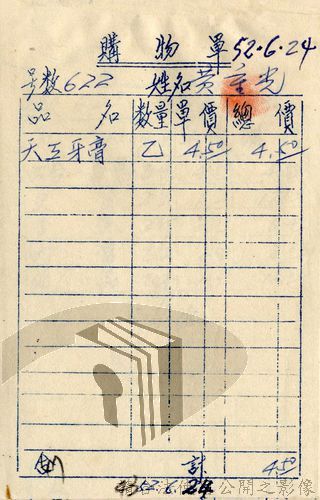 購物單 52.6.24
号数622 姓名 黃重光
品名 数量 單價 總價
天互牙膏 乙 4.50 4.50
計 4.50
52.6.24
公開之影像